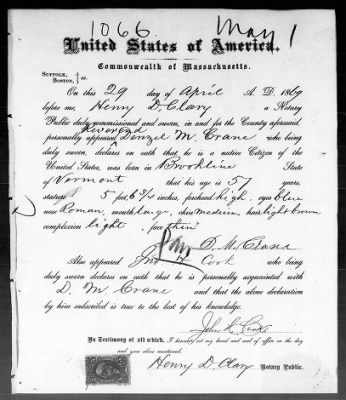 1066 May 1
United States of America.
Commonwealth of Massachusetts.
SUFFOLK, BOSTON, } ss.
On this 29 day of April A. D. 1869
before me, Henry D. Clary a Notary
Public duly commissioned and sworn, in and for the County aforesaid,
Reverend
personally appeared Denzel M Crane who being
duly sworn, declares on oath that he is a native Citizen of the
United States, was born in Brookline State
of Vermont that his age is 57 years,
stature 5 feet 6 3/4 inches, forehead high, eyes blue
nose Roman, mouth large, chin medium, hair light brown
complexion light, face thin
D. M. Crane
Also appeared Jno H Cook who being
duly sworn declares on oath that he is personally acquainted with
D. M Crane and that the above declaration
by him subscribed is true to the best of his knowledge.
John H. Cook
In Testimony of all which, I hereunto set my hand and seal of office on the day
and year above mentioned.
Henry D. Clary Notary Public.